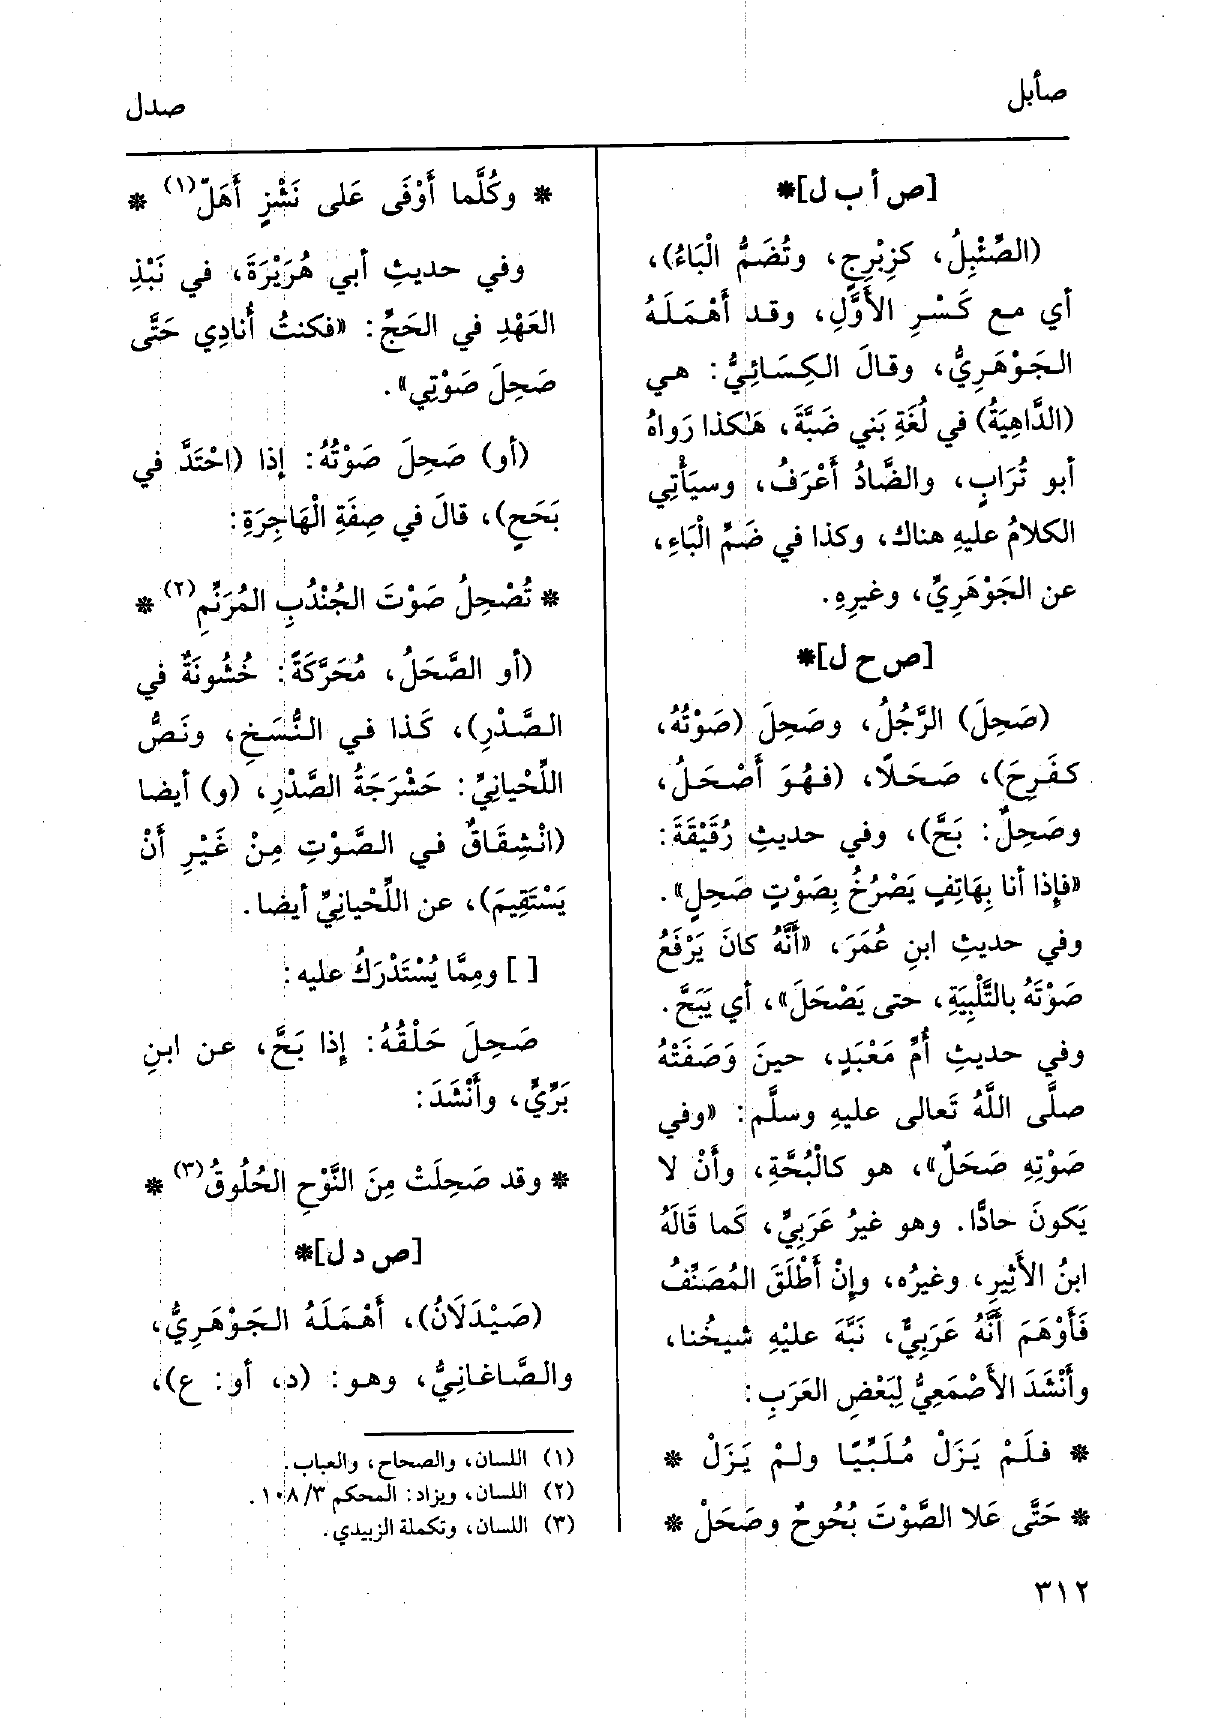 صأبل
صدل
[ص أ ب ل]*
(الصِّئْبِلُ، كزِبْرِجٍ، وتُضَمُّ الْبَاءُ)،
أي مع كَسْرِ الأَوَّلِ، وقد أَهْمَلَهُ
الجَوْهَرِيُّ، وقالَ الكِسَائِيُّ: هي
(الدَّاهِيَةُ) في لُغَةِ بَني ضَبَّةَ، هَكذا رَواهُ
أبو تُرَابٍ، والضَّادُ أَعْرَفُ، وسيَأْتِي
الكلامُ عليهِ هناك، وكذا في ضَمِّ الْبَاءِ،
عن الجَوْهَرِيِّ، وغيرِهِ.
[ص ح ل]*
(صَحِلَ) الرَّجُلُ، وصَحِلَ (صَوْتُهُ،
كفَرِحَ)، صَحَلًا، (فهُوَ أَصْحَلُ،
وصَحِلٌ: بَحَّ)، وفي حديثِ رُقَيْقَةَ:
«فإِذا أنا بِهَاتِفٍ يَصْرُخُ بِصَوْتٍ صَحِلٍ».
وفي حديثِ ابنِ عُمَرَ، «أَنَّهُ كانَ يَرْفَعُ
صَوْتَهُ بالتَّلْبِيَةِ، حتى يَصْحَلَ»، أي يَبَحَّ.
وفي حديثِ أُمِّ مَعْبَدٍ، حينَ وَصَفَتْهُ
صلَّى اللَّهُ تَعالى عليهِ وسلَّم: «وفي
صَوْتِهِ صَحَلٌ»، هو كالْبُحَّةِ، وأَنْ لا
يَكونَ حادًّا. وهو غيرُ عَرَبِيٍّ، كَما قَالَهُ
ابنُ الأَثِيرِ، وغيرُه، وإِنْ أَطْلَقَ المُصَنِّفُ
فَأَوْهَمَ أَنَّهُ عَرَبِيٌّ، نَبَّهَ عليْهِ شيخُنا،
وأَنْشَدَ الأَصْمَعِيُّ لِبَعْضِ العَرَبِ:
* فلَمْ يَزَلْ مُلَبِّيًا ولمْ يَزَلْ *
* حَتَّى عَلا الصَّوْتَ بُحُوحٌ وصَحَلْ *
* وكُلَّما أَوْفَى عَلى نَشْزٍ أَهَلّ(١) *
وفي حديثِ أبي هُرَيْرَةَ، في نَبْذِ
العَهْدِ في الحَجِّ: «فكنتُ أُنادِي حَتَّى
صَحِلَ صَوْتِي».
(أو) صَحِلَ صَوْتُهُ: إذا (احْتَدَّ في
بَحَحٍ)، قالَ في صِفَةِ الْهَاجِرَةِ:
* تُصْحِلُ صَوْتَ الجُنْدُبِ المُرَنِّمِ(٢) *
(أو الصَّحَلُ، مُحَرَّكَةً: خُشُونَةٌ في
الصَّدْرِ)، كَذا في النُّسَخِ، ونَصُّ
اللِّحْيانِيِّ: حَشْرَجَةُ الصَّدْرِ، (و) أيضا
(انْشِقَاقٌ في الصَّوْتِ مِنْ غَيْرِ أَنْ
يَسْتَقِيمَ)، عن اللِّحْيانِيِّ أيضا.
[ ] ومِمَّا يُسْتَدْرَكُ عليه:
صَحِلَ حَلْقُهُ: إذا بَحَّ، عن ابنِ
بَرِّيٍّ، وأَنْشَدَ:
* وقد صَحِلَتْ مِنَ النَّوْحِ الحُلُوقُ(٣) *
[ص د ل]*
(صَيْدَلَانُ)، أَهْمَلَهُ الجَوْهَرِيُّ،
والصَّاغانِيُّ، وهو: (د، أو: ع)،
(١) اللسان، والصحاح، والعباب.
(٢) اللسان، ويزاد: المحكم ١٠٨/٣.
(٣) اللسان، وتكملة الزبيدي.
٣١٢